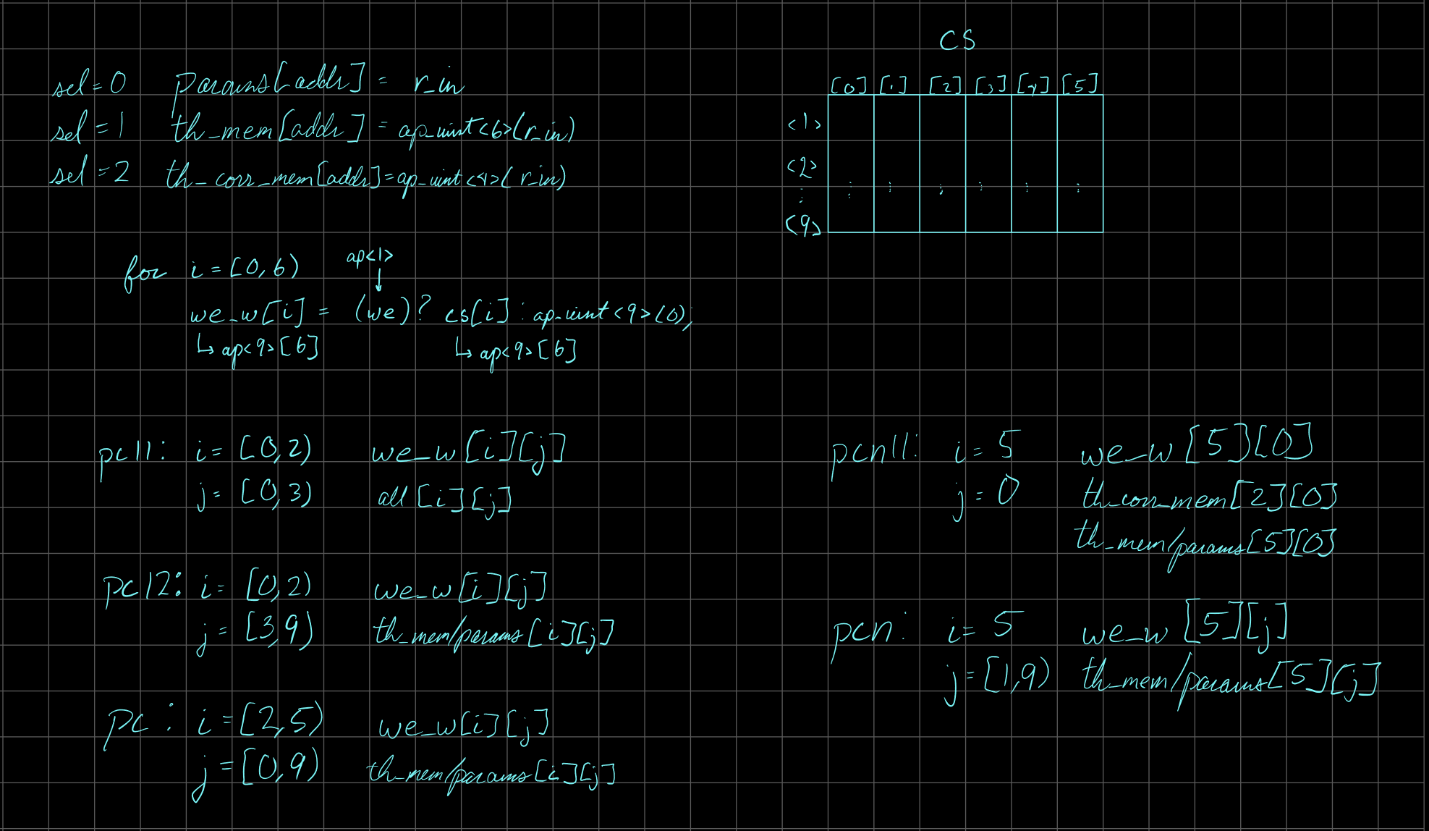 sel = 0 params[addr] = r_in
sel = 1 th_mem[addr] = ap_uint<6>(r_in)
sel = 2 th_corr_mem[addr] = ap_uint<4>(r_in)
for i = [0,6)
ap<1>
↓
we_w[i] = (we)? cs[i] : ap_uint<9>(0),
↳ ap<9>[6] ↳ ap<9>[6]
CS
[0] [1] [2] [3] [4] [5]
<1>
<2>
⋮
<9>
pc11: i = [0,2) we_w[i][j]
j = [0,3) all[i][j]
pc12: i = [0,2) we_w[i][j]
j = [3,9) th_mem/params[i][j]
pc: i = [2,5) we_w[i][j]
j = [0,9) th_mem/params[i][j]
pcn11: i = 5 we_w[5][0]
j = 0 th_corr_mem[2][0]
th_mem/params[5][0]
pcn: i = 5 we_w[5][j]
j = [1,9) th_mem/params[5][j]